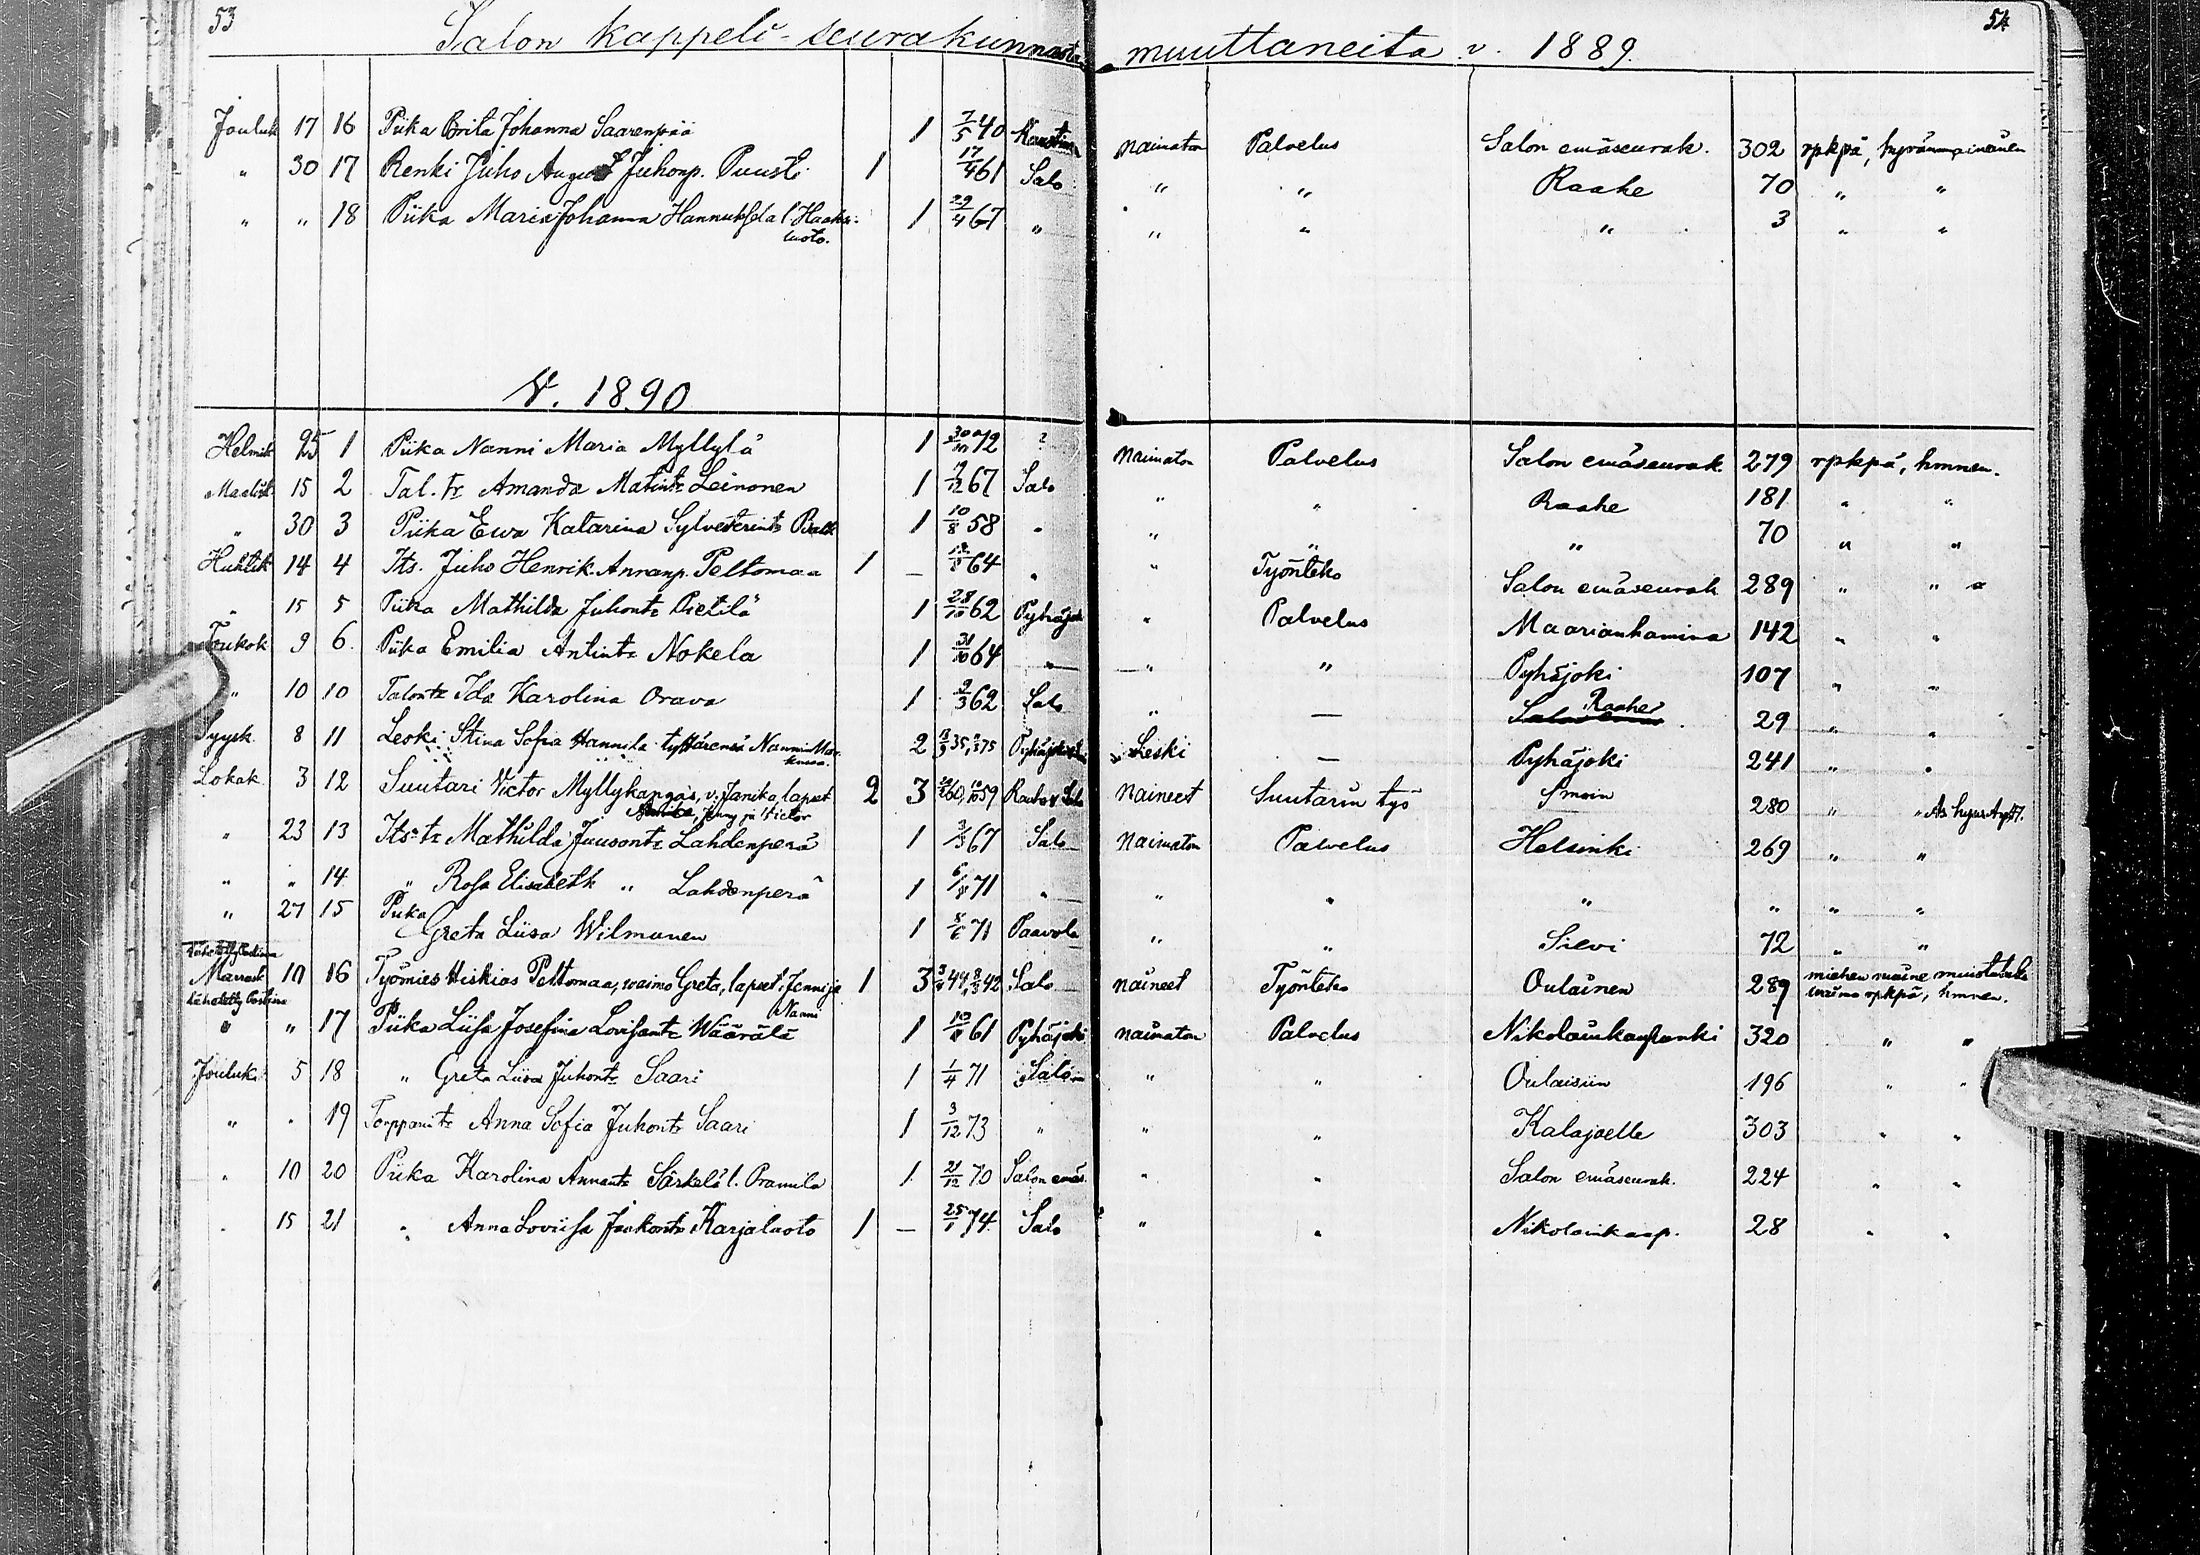 53 Salon kappeli-seurakunnasta muuttaneita v. 1889. 54
Jouluk 17 16 Piika Brita Johanna Saarenpää 1 7/5 40 Kaustinen naimaton Palvelus Salon emäseurak. 302 rpkpä, hyvänmaineinen
" 30 17 Renki Juho August Juhonp. Puusti 1 17/4 61 Salo " " Raahe 70 " "
" " 18 Piika Maria Johanna Hannuksela l. Haaka- 1 29/4 67 " " " " 3 " "
luoto.
V. 1890
Helmik 25 1 Piika Nanni Maria Myllylä 1 30/10 72 ? naimaton Palvelus Salon emäseurak. 279 rpkpä, hmnen.
Maalisk 15 2 Tal. tr Amanda Matintr Leinonen 1 67 Salo " " Raahe 181 " "
" 30 3 Piika Ewa Katarina Sylvesterintr 1 10/8 58 " " " " 70 " "
Huhtik 14 4 Its. Juho Henrik Annanp. Peltomaa 1 – 64 " " Työnteko Salon emäseurak 289 " "
" 15 5 Piika Mathilda Juhontr Pietilä 1 28/10 62 Pyhäjoki " Palvelus Maarianhamina 142 " "
Toukok 9 6. Piika Emilia Antintr Nokela 1 31/10 64 " " " Pyhäjoki 107 " "
" 10 10 Talontr Ida Karolina Orava 1 9/3 62 Salo " — Raahe 29 " "
Syysk. 8 11 Leski Stina Sofia Hannila tyttärensä Nanni 2 35, 75 Leski — Pyhäjoki 241 " "
Lokak 3 12 Suutari Victor Myllykangas, v. Janika, lapset 2 3 60, 59 Raahe Salo Naineet Suutarin työ 280 "
Jenny ja Victor
" 23 13 Its. tr Mathilda Juusontr Lahdenperä 1 3/3 67 Salo Naimaton Palvelus Helsinki 269 " "
" " 14 " Rosa Elisabeth " Lahdenperä 1 71 " " " " " " "
" 27 15 Piika Greta Liisa Wilmunen 1 71 Paavola " " Sievi 72 " "
Marrask 10 16 Työmies Hiskias Peltomaa, vaimo Greta, lapset Jenni ja 1 3 44, 42 Salo naineet Työnteko Oulainen 289 miehen maine
Nanni vaimo rpkpä, hmnen.
" " 17 Piika Liisa Josefina Lovisantr Wäärälä 1 61 Pyhäjoki naimaton Palvelus Nikolainkaupunki 320 " "
Jouluk. 5 18 " Greta Liisa Juhontr Saari 1 1/4 71 Salo " " Oulaisiin 196 " "
" " 19 Torpparitr Anna Sofia Juhontr Saari 1 3/12 73 " " " Kalajoelle 303 " "
" 10 20 Piika Karolina Annantr Särkelä l. Pramila 1 21/12 70 Salon emäs. " " Salon emäseurak. 224 " "
" 15 21 " Anna Loviisa Jaakontr Karjaluoto 1 – 25/1 74 Salo " " Nikolainkaup. 28 " "